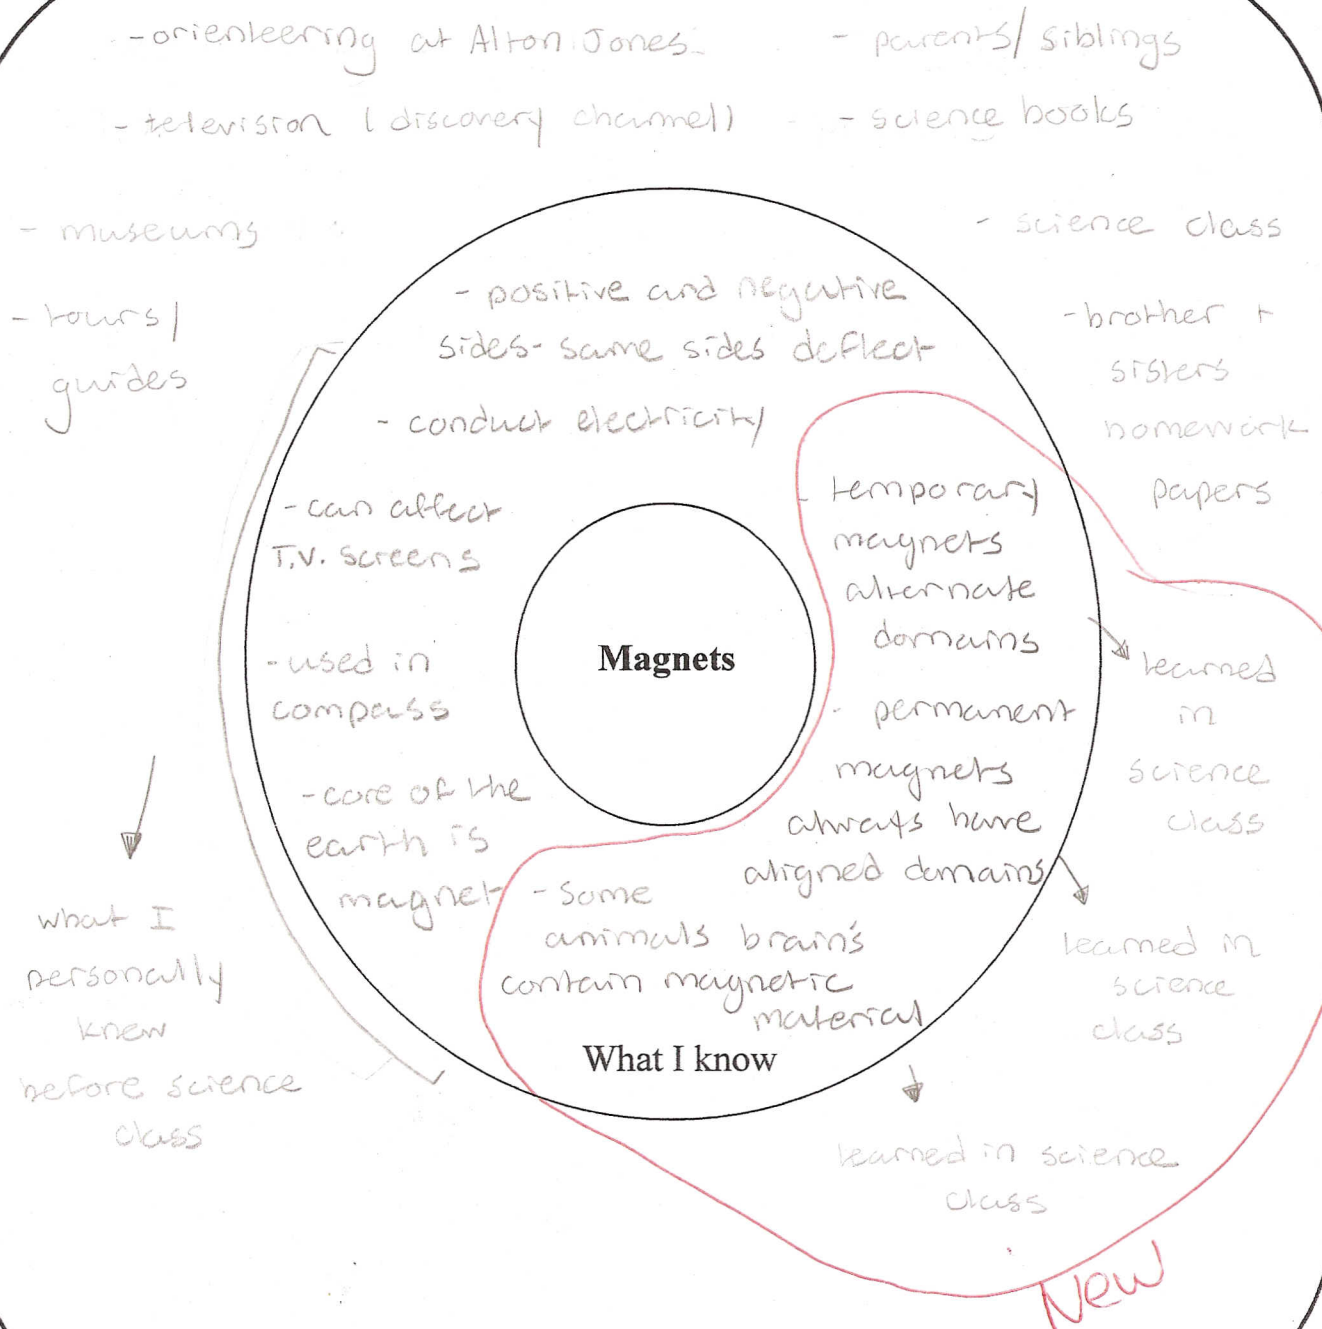 -orienteering at Alton Jones
- parents/siblings
- television (discovery channel)
- science books
- museums
- science class
- tours/
guides
- brother +
sisters
homework
papers
- positive and negative
sides- same sides deflect
- conduct electricity
- can affect
T.V. screens
- used in
compass
- core of the
earth is
magnet
Magnets
- temporary
magnets
alternate
domains
- permanent
magnets
always have
aligned domains
- some
animals brain's
contain magnetic
material
What I know
learned
in
science
class
learned in
science
class
learned in science
class
what I
personally
knew
before science
class
New